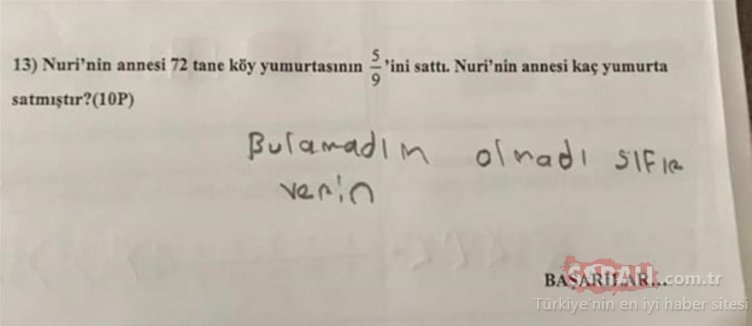 13) Nuri'nin annesi 72 tane köy yumurtasının 5/9 'ini sattı. Nuri'nin annesi kaç yumurta
satmıştır?(10P)
Bulamadım olmadı sıfır
verin
BAŞARILAR...
SABAH.com.tr
Türkiye'nin en iyi haber sitesi